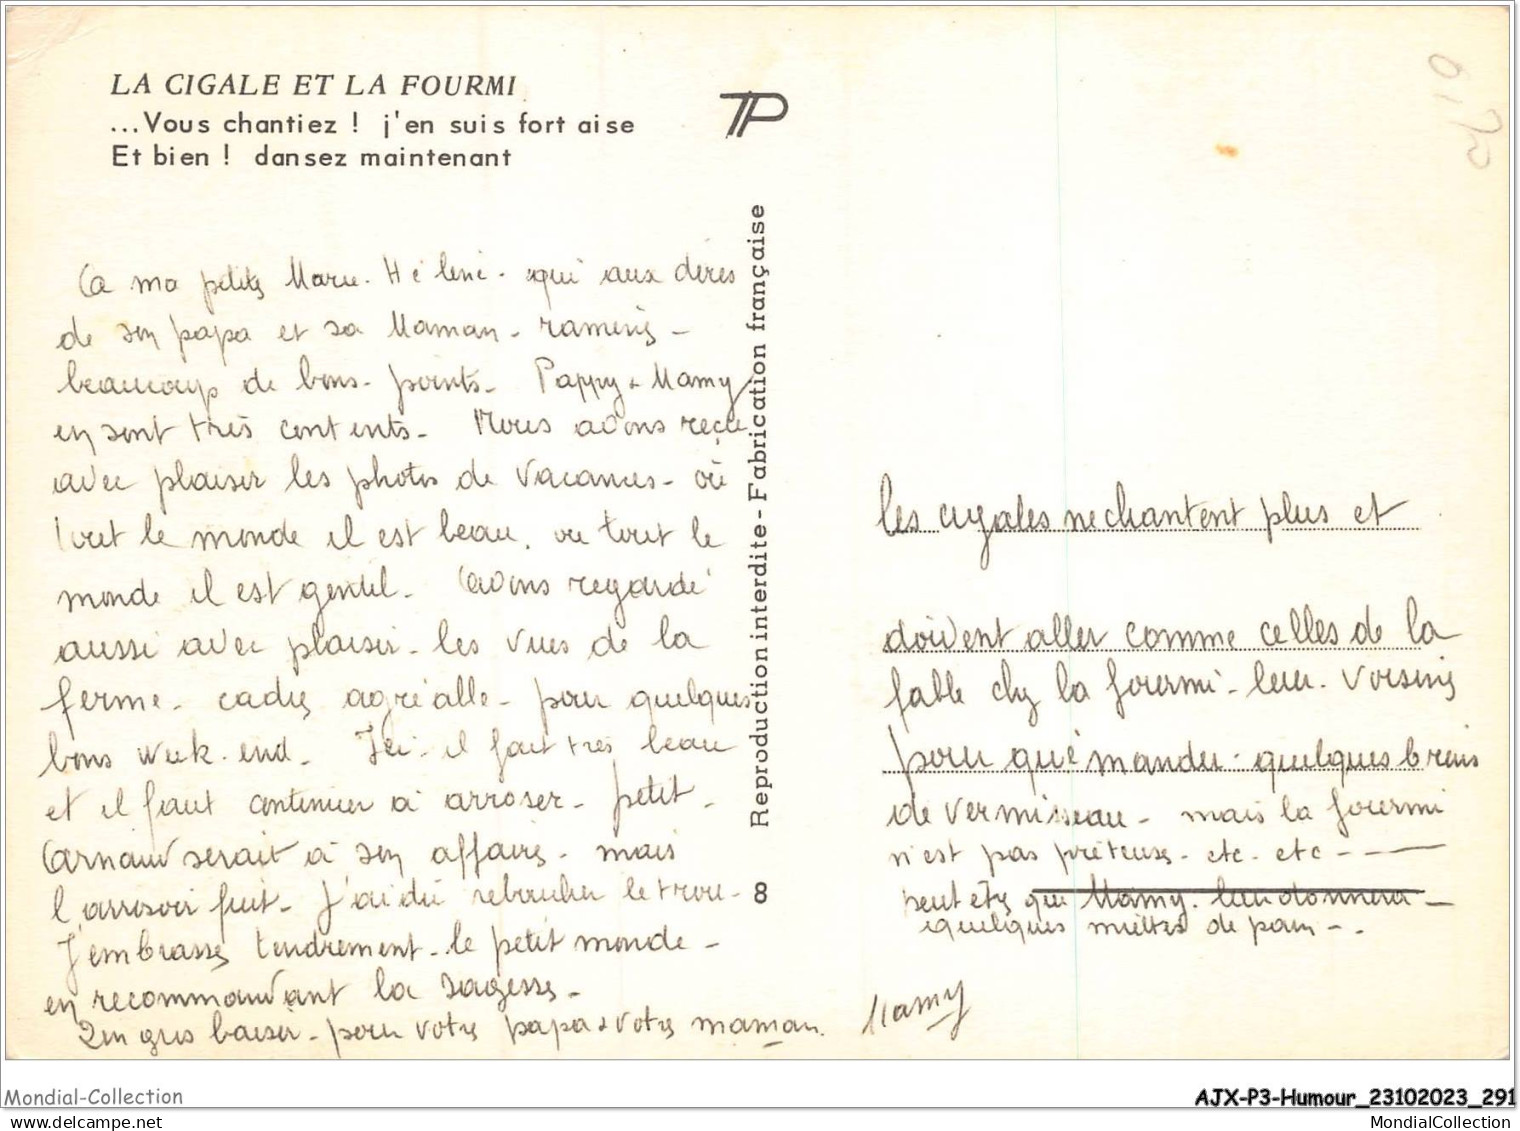 LA CIGALE ET LA FOURMI
...Vous chantiez ! j'en suis fort aise
Et bien ! dansez maintenant
TP
Reproduction interdite - Fabrication française
8
a ma petite Marie. Hélène - qui aux dires
de son papa et sa Maman - ramène -
beaucoup de bons - points - Pappy & Mamy
en sont très contents - Nous avons reçu
avec plaisir les photos de vacances - où
tout le monde il est beau, ou tout le
monde il est gentil. avons regardé
aussi avec plaisir - les vues de la
ferme - cadre agréable - pour quelques
bons week-end - Ici - il fait très beau
et il faut continuer à arroser - petit -
Arnaud serait à son affaire - mais
l'arrosoir fuit - J'ai dû reboucher le trou -
J'embrasse tendrement - le petit monde -
en recommandant la sagesse -
Un gros baiser - pour votre papa & votre maman.
les cigales ne chantent plus et
doivent aller comme celles de la
fable chez la fourmi - leur - voisine
pour quémander - quelques brins
de vermisseau - mais la fourmi
n'est pas prêteuse - etc - etc -
peut être que Mamy - leur donnera -
quelques miettes de pain - .
Mamy
Mondial-Collection
delcampe.net
AJX-P3-Humour_23102023_291
MondialCollection